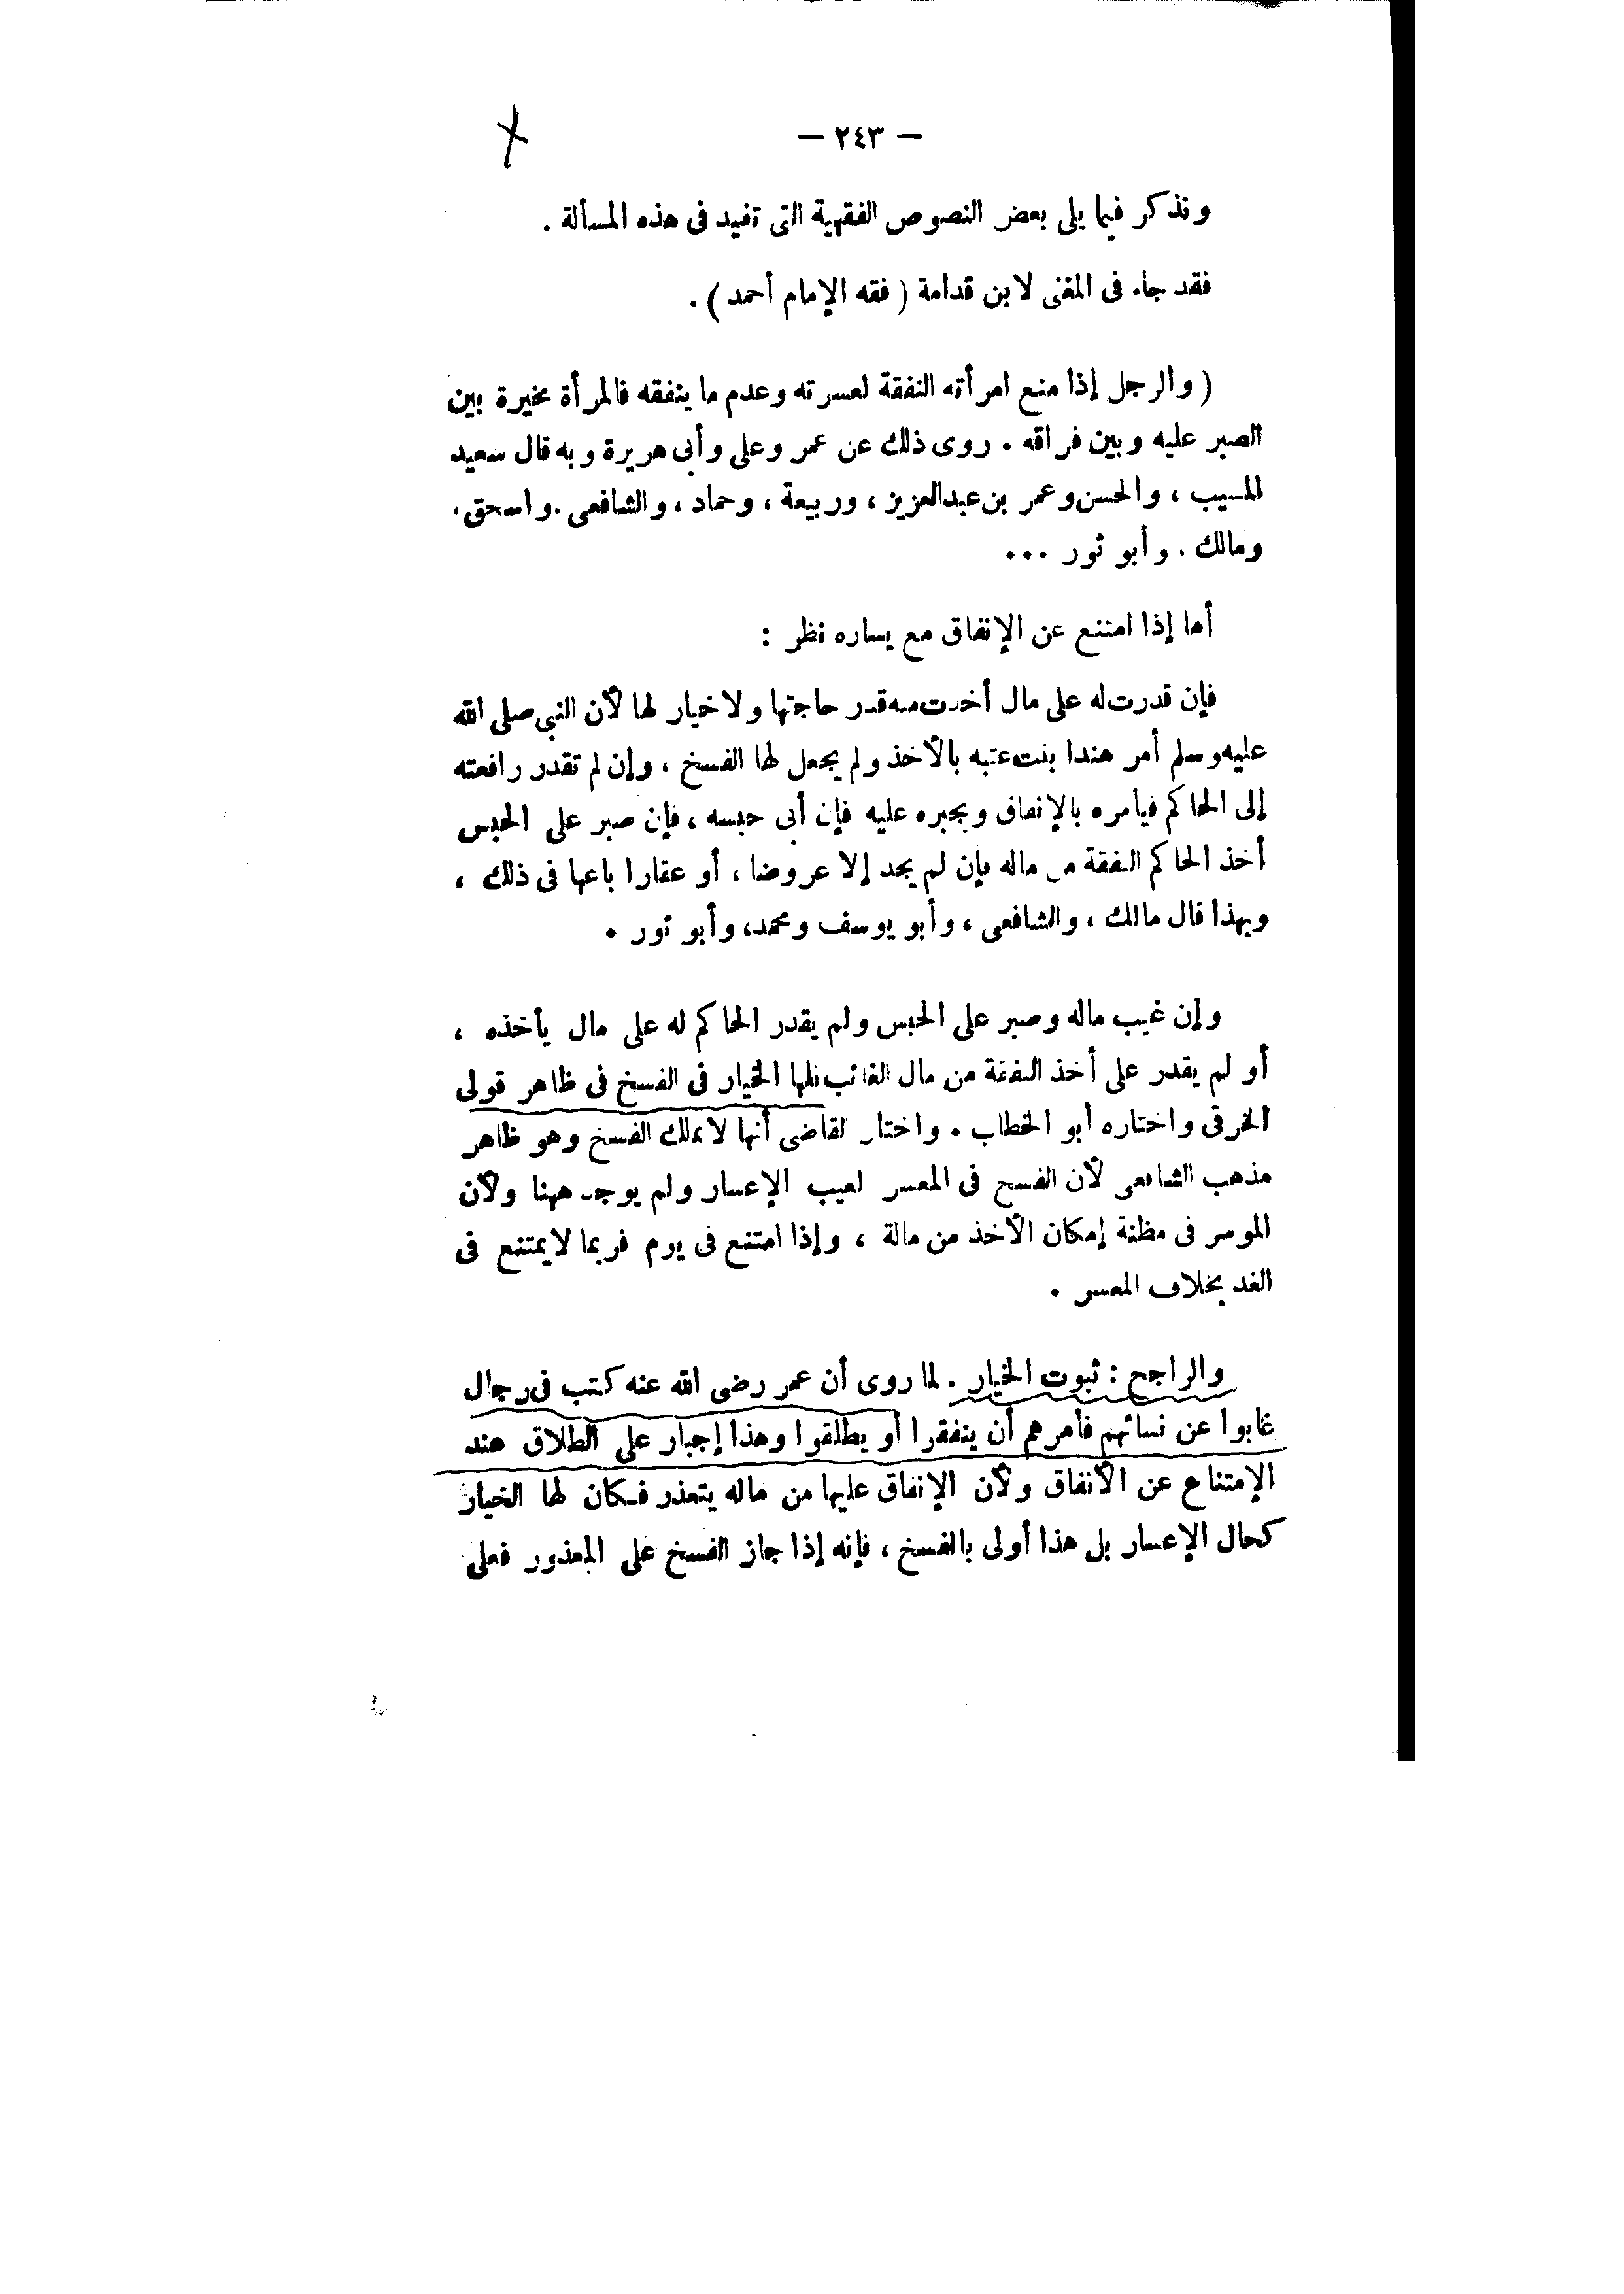 — ٢٤٣ —
ونذكر فيما يلى بعض النصوص الفقهية التى تفيد فى هذه المسألة .
فقد جاء فى المغنى لابن قدامة ( فقه الإمام أحمد ) .
( والرجل إذا منع امرأته النفقة لعسرته وعدم ما ينفقه فالمرأة مخيرة بين
الصبر عليه وبين فراقه . روى ذلك عن عمر وعلى وأبى هريرة وبه قال سعيد
المسيب ، والحسن وعمر بن عبدالعزيز ، وربيعة ، وحماد ، والشافعى . واسحق ،
ومالك . وأبو ثور ...
أما إذا امتنع عن الإنفاق مع يساره نظر :
فإن قدرت له على مال أخذت منه قدر حاجتها ولا خيار لها لأن النبى صلى الله
عليه وسلم أمر هندا بنت عتبه بالأخذ ولم يجعل لها الفسخ ، وإن لم تقدر رافعته
إلى الحاكم فيأمره بالإنفاق ويجبره عليه فإن أبى حبسه ، فإن صبر على الحبس
أخذ الحاكم النفقة من ماله فإن لم يجد إلا عروضا ، أو عقارا باعها فى ذلك ،
وبهذا قال مالك ، والشافعى ، وأبو يوسف ومحمد ، وأبو ثور .
وإن غيب ماله وصبر على الحبس ولم يقدر الحاكم له على مال يأخذه ،
أو لم يقدر على أخذ النفقة من مال الغائب فلها الخيار فى الفسخ فى ظاهر قولى
الخرقى واختاره أبو الخطاب . واختار القاضى أنها لا تملك الفسخ وهو ظاهر
مذهب الشافعى لأن الفسخ فى المعسر لعيب الإعسار ولم يوجد ههنا ولأن
الموسر فى مظنة إمكان الأخذ من مالة ، وإذا امتنع فى يوم فربما لا يمتنع فى
الغد بخلاف المعسر .
والراجح : ثبوت الخيار . لما روى أن عمر رضى الله عنه كتب فى رجال
غابوا عن نسائهم فأمرهم أن ينفقوا أو يطلقوا وهذا إجبار على الطلاق عند
الإمتناع عن الأنفاق ولأن الإنفاق عليها من ماله يتعذر فكان لها الخيار
كحال الإعسار بل هذا أولى بالفسخ ، فإنه إذا جاز الفسخ على المعذور فعلى